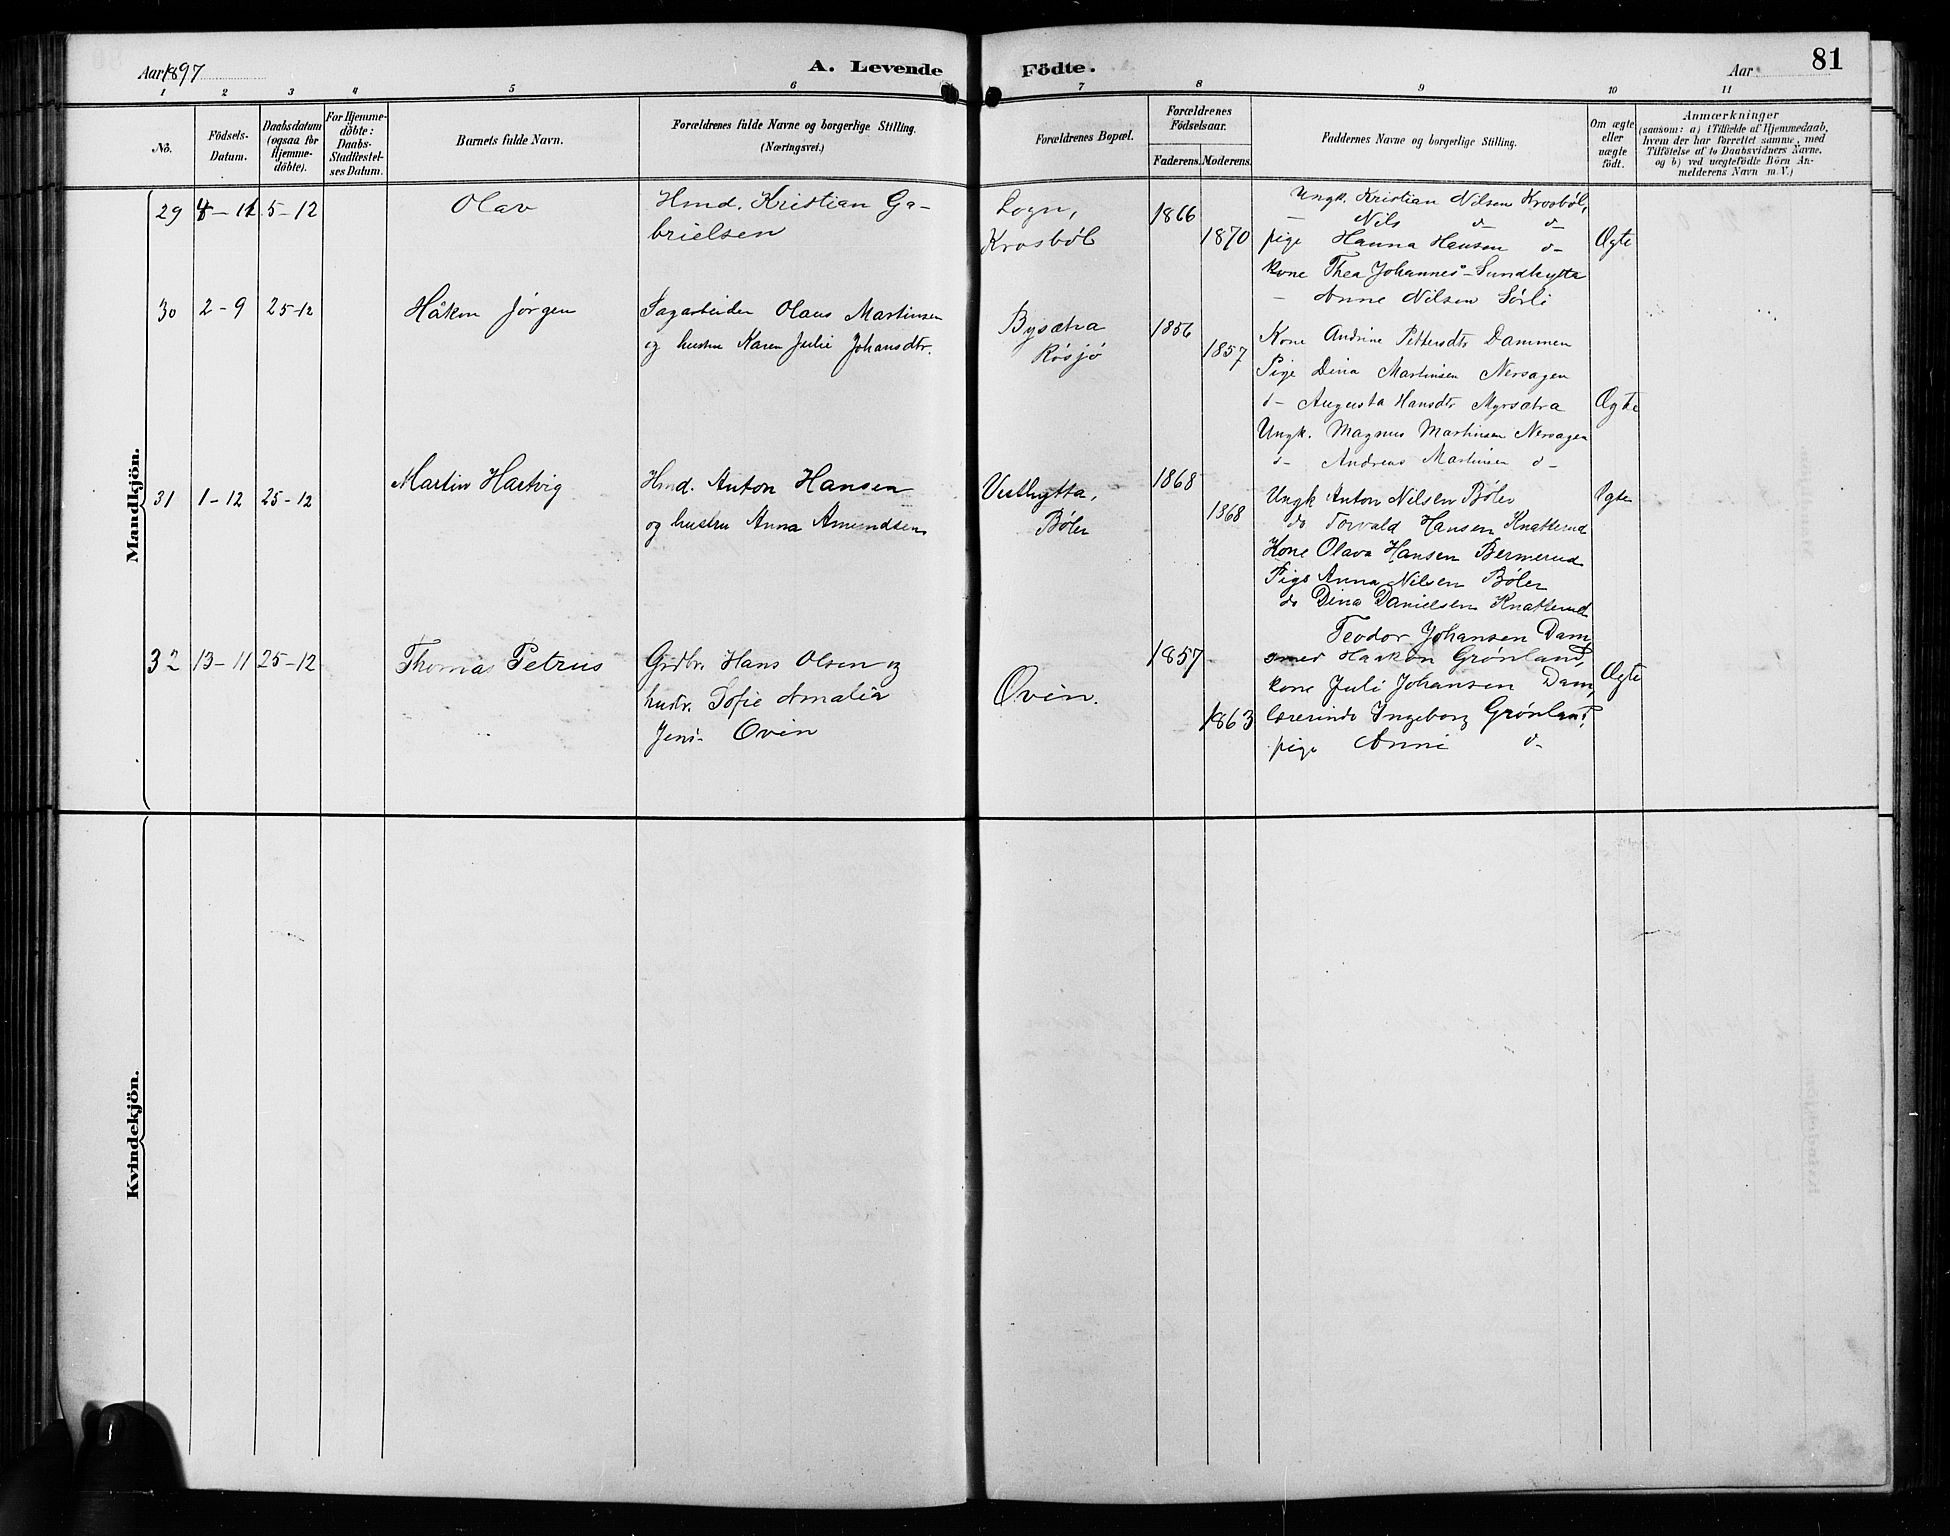 Aar 1897
A. Levende Födte.
Aar
81
1 2 3 4 5 6 7 8 9 10 11
No.
Födsels-
Datum.
Daabsdatum
(ogsaa for
Hjemme-
döbte).
For Hjemme-
döbte:
Daabs-
Stadfæstel-
ses Datum.
Barnets fulde Navn.
Forældrenes fulde Navne og borgerlige Stilling.
(Næringsvei.)
Forældrenes Bopæl.
Forældrenes
Födselsaar.
Faderens. Moderens.
Faddernes Navne og borgerlige Stilling.
Om ægte
eller
uægte
födt.
Anmærkninger
(saasom: a) i Tilfælde af Hjemmedaab,
hvem der har forrettet samme, med
Tilföielse af to Daabsvidners Navne,
og b) ved uægtefödte Börn An-
melderens Navn m.V.)
Mandkjön.
29 4-11 5-12
Olav
Hmd. Kristian Ga-
brielsen
Sogn,
Krosbøl
1866
1870
Ungk. Kristian Nilsen Krosbøl,
- Nils d- d-
pige Hanna Hansen d-
kone Thea Johannes- Sundhytta
- Anne Nilsen Sørli
Ægte
30 2-9 25-12
Håkon Jørgen
Sagarbeider Olaus Martinsen
og hustru Karen Julie Johansdtr.
Bysætra
Røsjø
1856
1857
Kone Andrine Pettersdtr Dammen
Pige Dina Martinsen Nersagen
d- Augusta Hansdtr Myrsætra
Ungk. Magnus Martinsen Nersagen
d- Andreas Martinsen d-
Ægte
31 1-12 25-12
Martin Hartvig
Hmd. Anton Hansen
og hustru Anna Amundsen
Vesthytta,
Bøler
1868
1868
Ungk Anton Nilsen Bøler
do Torvald Hansen Knatterud
Kone Olava Hansen Bermerud
Pige Anna Nilsen Bøler
do Dina Danielsen Knatterud
Ægte
32 13-11 25-12
Thomas Petrus
Grdbr. Hans Olsen og
hustr. Sofie Amalia
Jens- Ovin
Ovin.
1857
1863
Teodor Johansen Dam,
smed Haakon Grønland,
kone Juli Johansen Dam,
lærerinde Ingeborg Grønland,
pige Anni d-
Ægte
Kvindekjön.